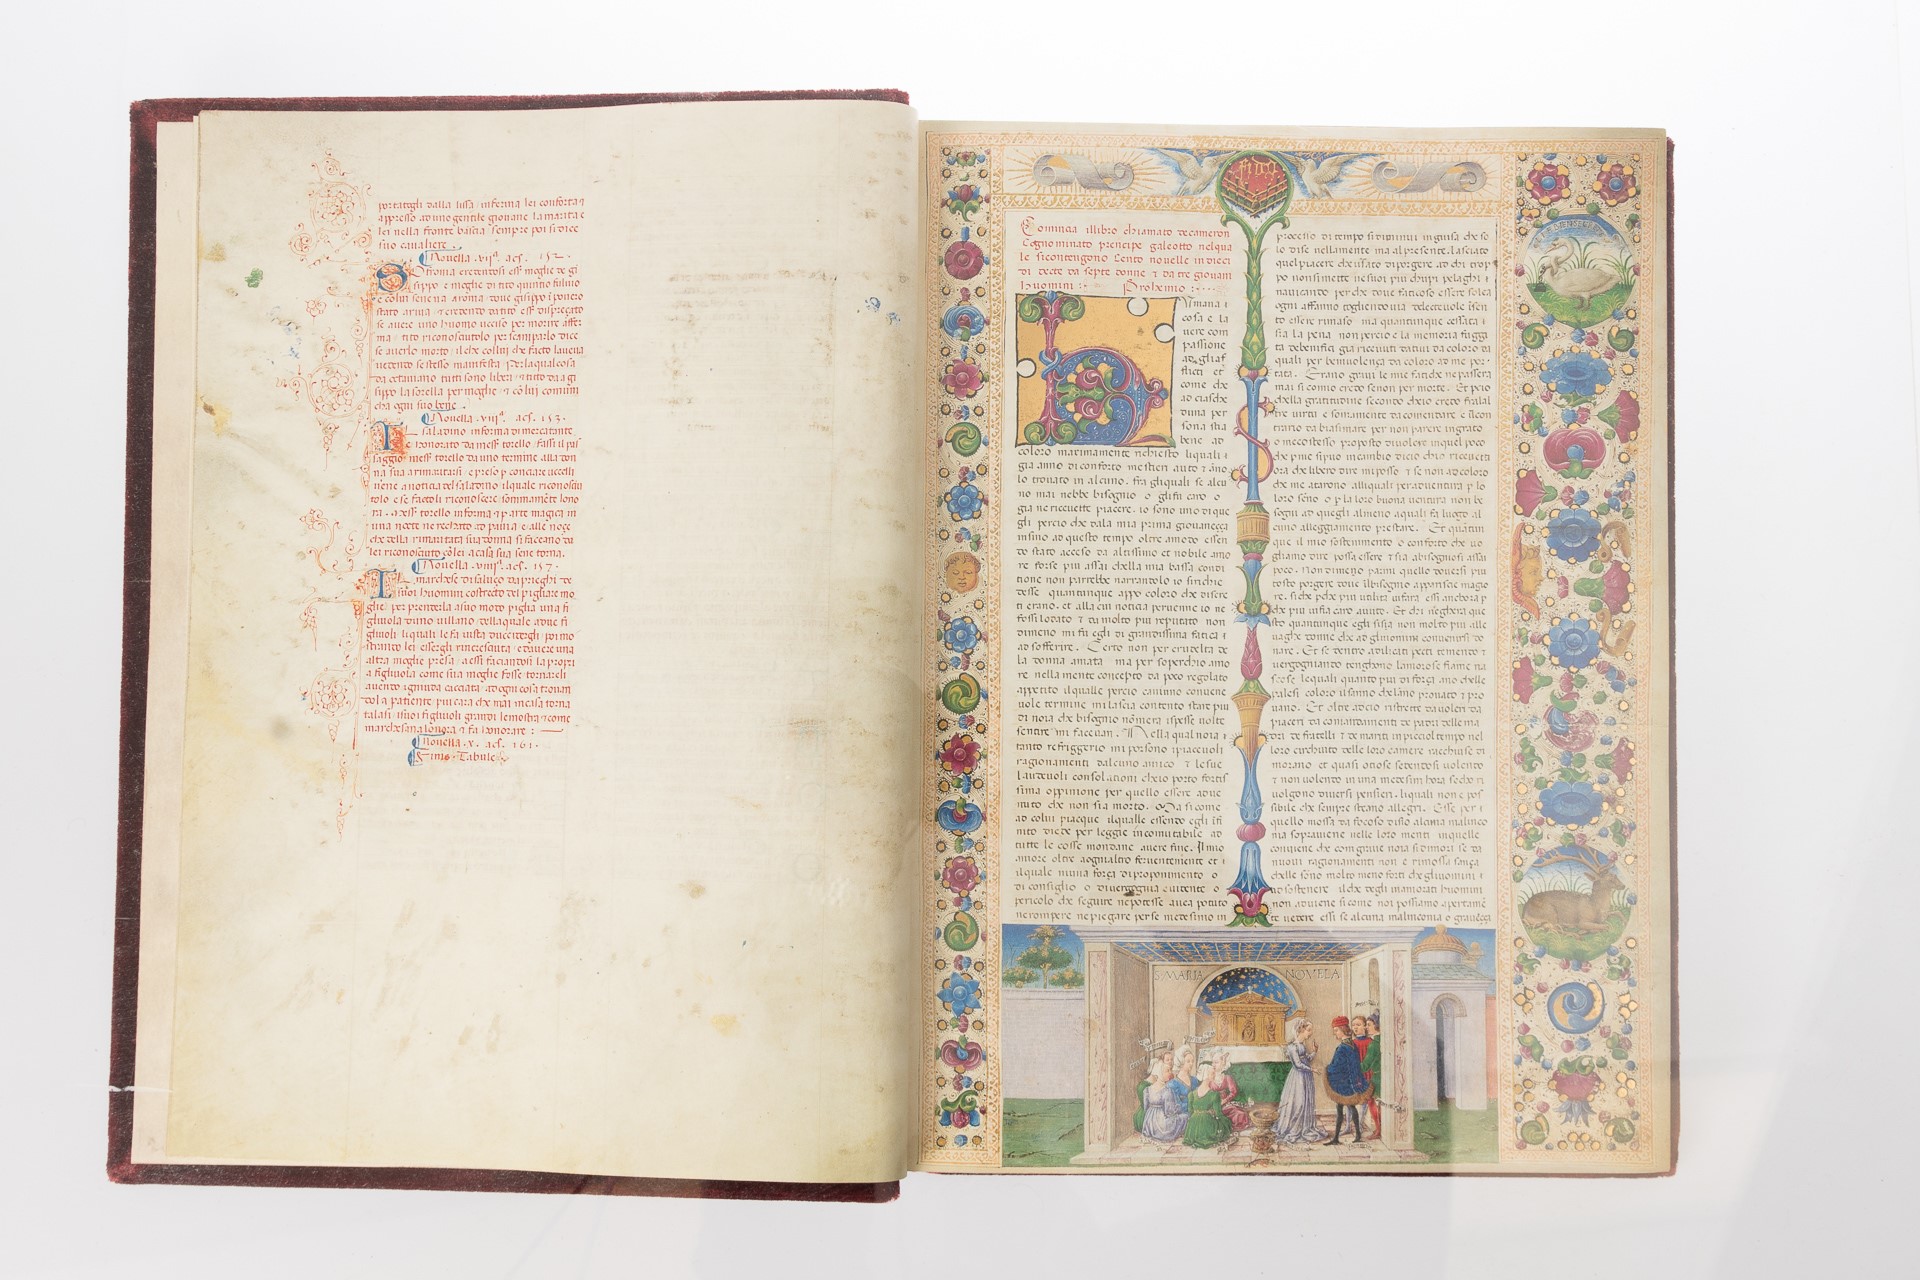 portatogli dalla lissa inferma lei conforta ⁊
appresso ad uno gentile giovane la marita e
lei nella fronte basciata sempre poi si dice
suo cavaliere.
Nouella .vii.ª acs. 152.
Sofronia credendosi ess moglie de gi
sippo e moglie di tito quintio fuluio
e colui sene ua a roma doue gisippo i pouero
stato ariua ⁊ credendo da tito ess disprecato
se auere uno huomo ucciso per morire affer
ma tito riconosciutolo per scamparlo dice
se auerlo morto il che colui che facto lauea
uedendo se stesso manifesta Per la qual cosa
da octauiano tutti sono liberi ⁊ tito da a gi
sippo la sorella per moglie ⁊ cõ lui comuni
cha ogni suo bene.
Nouella .viii.ª acs. 153.
Il saladino in forma di mercatante
e honorato da mess torello fassi il pas
saggio mess torello da uno termine alla don
na sua a rimaritarsi e preso p conciare uccelli
uene a noticia del saladino il quale riconosciu
tolo e se factoli riconoscere sommamẽte lono
ra. mess torello inferma ⁊ p arte magica in
una nocte ne rechato ad pauia e alle noce
che della rimaritata sua donna si faceano da
lei riconosciuto cõ lei a casa sua sene torna.
Nouella .viiii.ª acs. 157.
Il marchese di saluço da prieghi de
suoi huomini costrecto del pigliare mo
glie per prenderla a suo modo piglia una fi
gliuola duno uillano della quale a due fi
gliuoli li quali le fa uista duccidergli poi mo
strando lei essergli rincresciuta e dauere una
altra moglie presa a essi faciandosi la propri
a figliuola come sua moglie fosse tornare li
auendo ignuda cacciata ad ogni cosa trouan
dola patiente piu cara che mai in casa torna
talasi suoi figliuoli grandi le mostra ⁊ come
marchesana lonora ⁊ fa honorare :
Nouella .x. acs. 161.
Finis Tabule
Comincia illibro chiamato decameron
Cognominato prencipe galeotto nelqua
le sicontengono Cento nouelle in dieci
di decte da septe donne ⁊ da tre giouani
huomini : Prohemio :
Vmana i
cosa e la
uere com
passione
ad gli af
flicti et
come che
ad ciasche
duna per
sona stia
bene ad
coloro maximamente richiesto liquali i
gia anno di conforto mestieri auto ⁊ ãno
lo trouato in alcuno. fra gli quali se alcu
no mai nebbe bisogno o gli fu caro o
gia ne riceuette piacere. io sono uno di que
gli percio che dala mia prima giouanecca
insino ad questo tempo oltre amodo essen
do stato acceso da altissimo et nobile amo
re forse piu assai chella mia bassa condi
tione non parrebbe narrandolo io si riche
desse quantunque appo coloro che discre
ti erano. et alla cui noticia peruenne io ne
fossi lodato ⁊ da molto piu reputato non
dimeno mi fu egli di grandissima fatica i
ad sofferire. Certo non per crudelta de
la donna amata ma per soperchio amo
re nella mente concepto da poco regolato
appetito ilquale percio ca niuno conuene
uole termine mi lascia contento stare piu
di noia che bisogno nõ mera ispesse uolte
sentire mi facceua. Nella qual noia i
tanto refriggerio mi porsono i piaceuoli
ragionamenti dalcuno amico ⁊ le sue
laudeuoli consolationi che io porto fortis
sima oppinione per quello essere adue
nuto che non sia morto. Ma si come
ad colui piacque ilquale essendo egli ifi
nito diede per leggie incomutabile ad
tutte le cosse mondane auere fine. Il mio
amore oltre a ogni altro feruentemente et i
ilquale niuna força di proponimento o
di consiglio o di uergogna euidente o
pericolo che seguire ne potesse auea potuto
ne rompere ne piegare per se medesimo in
processo di tempo si diminui in guisa che so
lo di se nella mente ma al presente. lasciato
quel piacere che usato di porgere ad chi trop
po non si mette ne suoi piu chupi pelaghi i
nauicando per che doue faticoso essere solea
ogni affanno togliendo uia dilecteuole isen
to essere rimaso ma quantunque cessata i
sia la pena non percio e la memoria fuggi
ta de benifici gia riceuuti datiui da coloro da
quali per beniuolença da coloro ad me por
tata. Erano graui le mie fatiche ne passera
mai si comio credo se non per morte. Et pcio
che la gratitudine secondo che io credo fra lal
tre uirtu e somamente da comendare e il con
trario da biasimare per non parere ingrato
o meco stesso proposto di uolere in quel poco
che p me si puo in cambio di cio chio riceuetti
ora che libero dire mi posso ⁊ se non ad coloro
che me atarono alli quali per aduentura p lo
loro seño o p la loro buona uentura non be
sogni ad quegli almeno a quali fa luogo al
cuno alleggiamento prestare. Et quãtun
que il mio sostenimento o conforto che uo
gliamo dire possa essere ⁊ sia abisognosi assai
poco. Non dimeno parmi quello douersi piu
tosto porgere doue il bisogno apparisce magio
re. si che p che piu utilita ui fara essi anchora p
che piu ui fia caro auuto. Et chi neghera que
sto quantunque egli si sia non molto piu alle
uaghe donne che ad gli uomini conuenirsi do
nare. Et se dentro a dilicati pecti temendo ⁊
uergognando tenghono lamorose fiame na
scose lequali quanto piu di força ano che le
palesi coloro il sanno che lano prouato ⁊ pro
uano. Et oltre ad cio ristrette da uoleri da
piaceri da comandamenti de padri delle ma
dri de fratelli ⁊ de mariti in picciol tempo nel
loro circhuito delle loro camere racchiuse di
morano et quasi otiose sedendosi uolendo
⁊ non uolendo in una medesima hora seco ri
uolgono diuersi pensieri. liquali non e pos
sibile che sempre steano allegri. Esse per i
quello mossa da focoso disio alcuna malinco
nia soprauiene nelle loro menti in quelle
conuiene che con graue noia si dimori se da
nuoui ragionamenti non e rimossa sança
chelle sono molto meno forti che gliuomini i
ad sostenere. il che degli inamorati huomini
non aduiene si come noi possiamo apertamẽ
te uedere essi se alcuna malinconia o graueçça
S. MARIA NOVELA